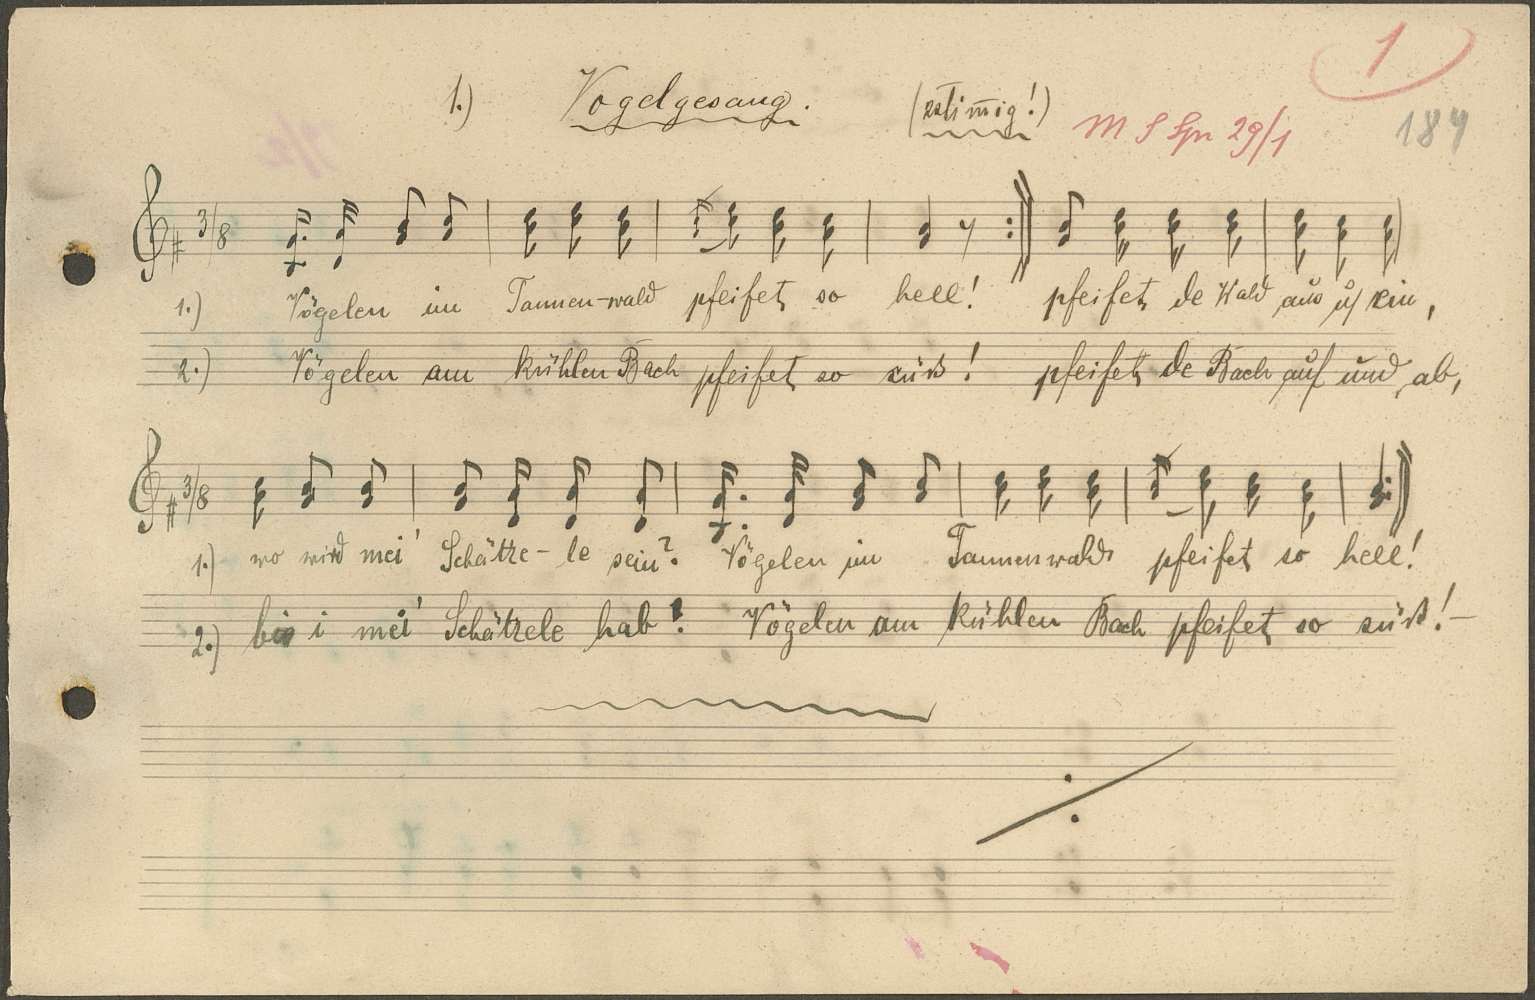 1
1.) Vogelgesang. (2stim̄ig!) M S Spr 29/1 184
3/8
1.) Vögelen im Tannen-wald pfeifet so hell! pfeifet de Wald aus ein,
2.) Vögelen am kühlen Bach pfeifet so süß! pfeifet de Bach auf und ab,
3/8
1.) wo wird mei' Schätze-le sein? Vögelen im Tannenwald pfeifet so hell!
2.) bis i mei' Schätzele hab? Vögelen am kühlen Bach pfeifet so süß!-